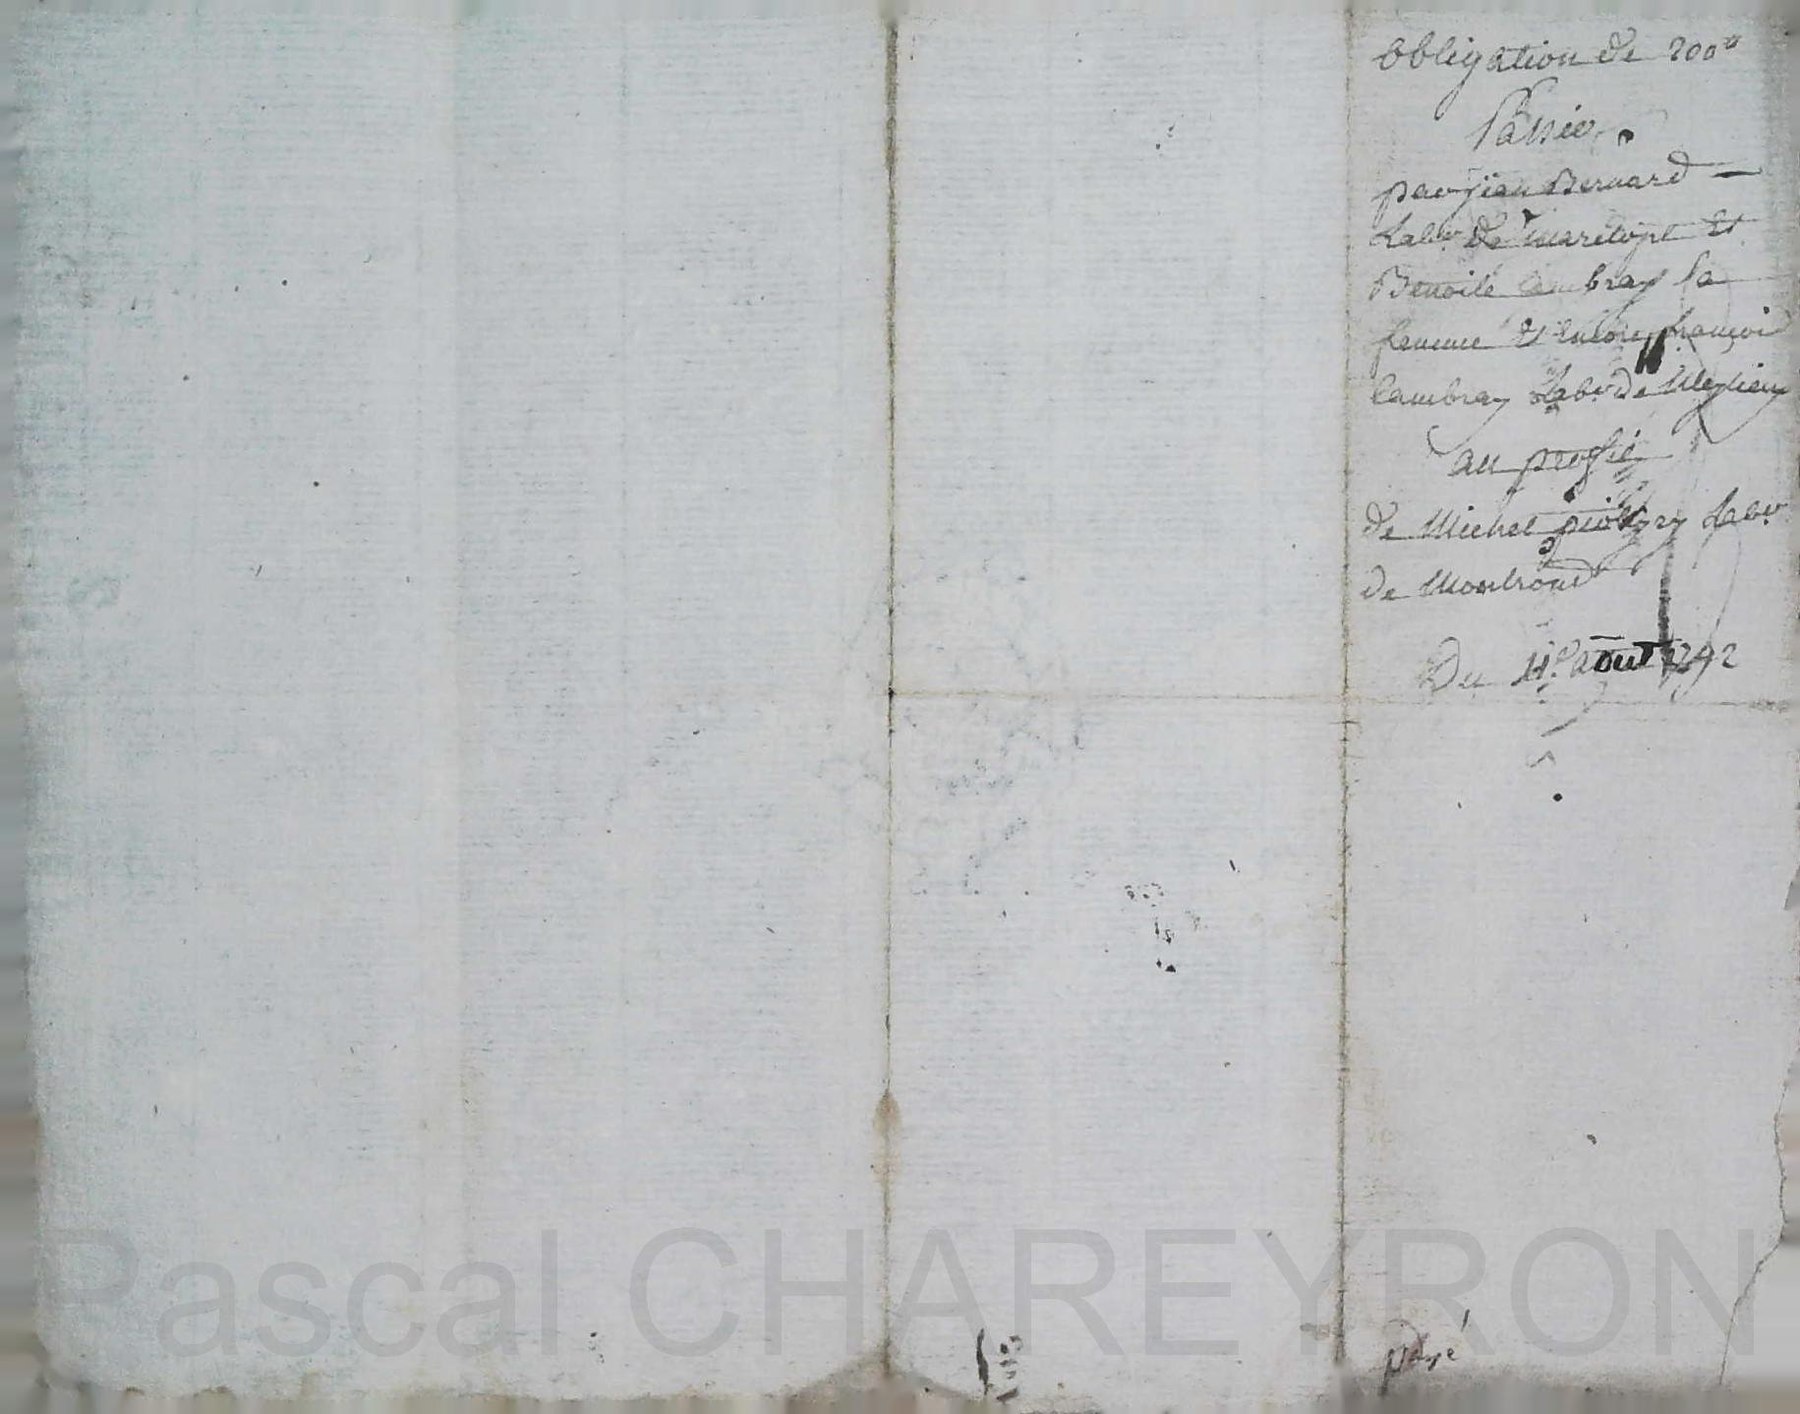 Obligation de 200#
Passée
par jean Bernard
Labr. de
Benoite cambray sa
femme & encore francois
Cambray Labr. de Meylieu
au proffit
de Michel Labr
de Montrond
Du 11e. aout 1792
payé
Pascal CHAREYRON